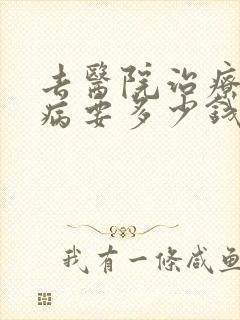 去醫院治療
病要多少錢
我有一條咸魚